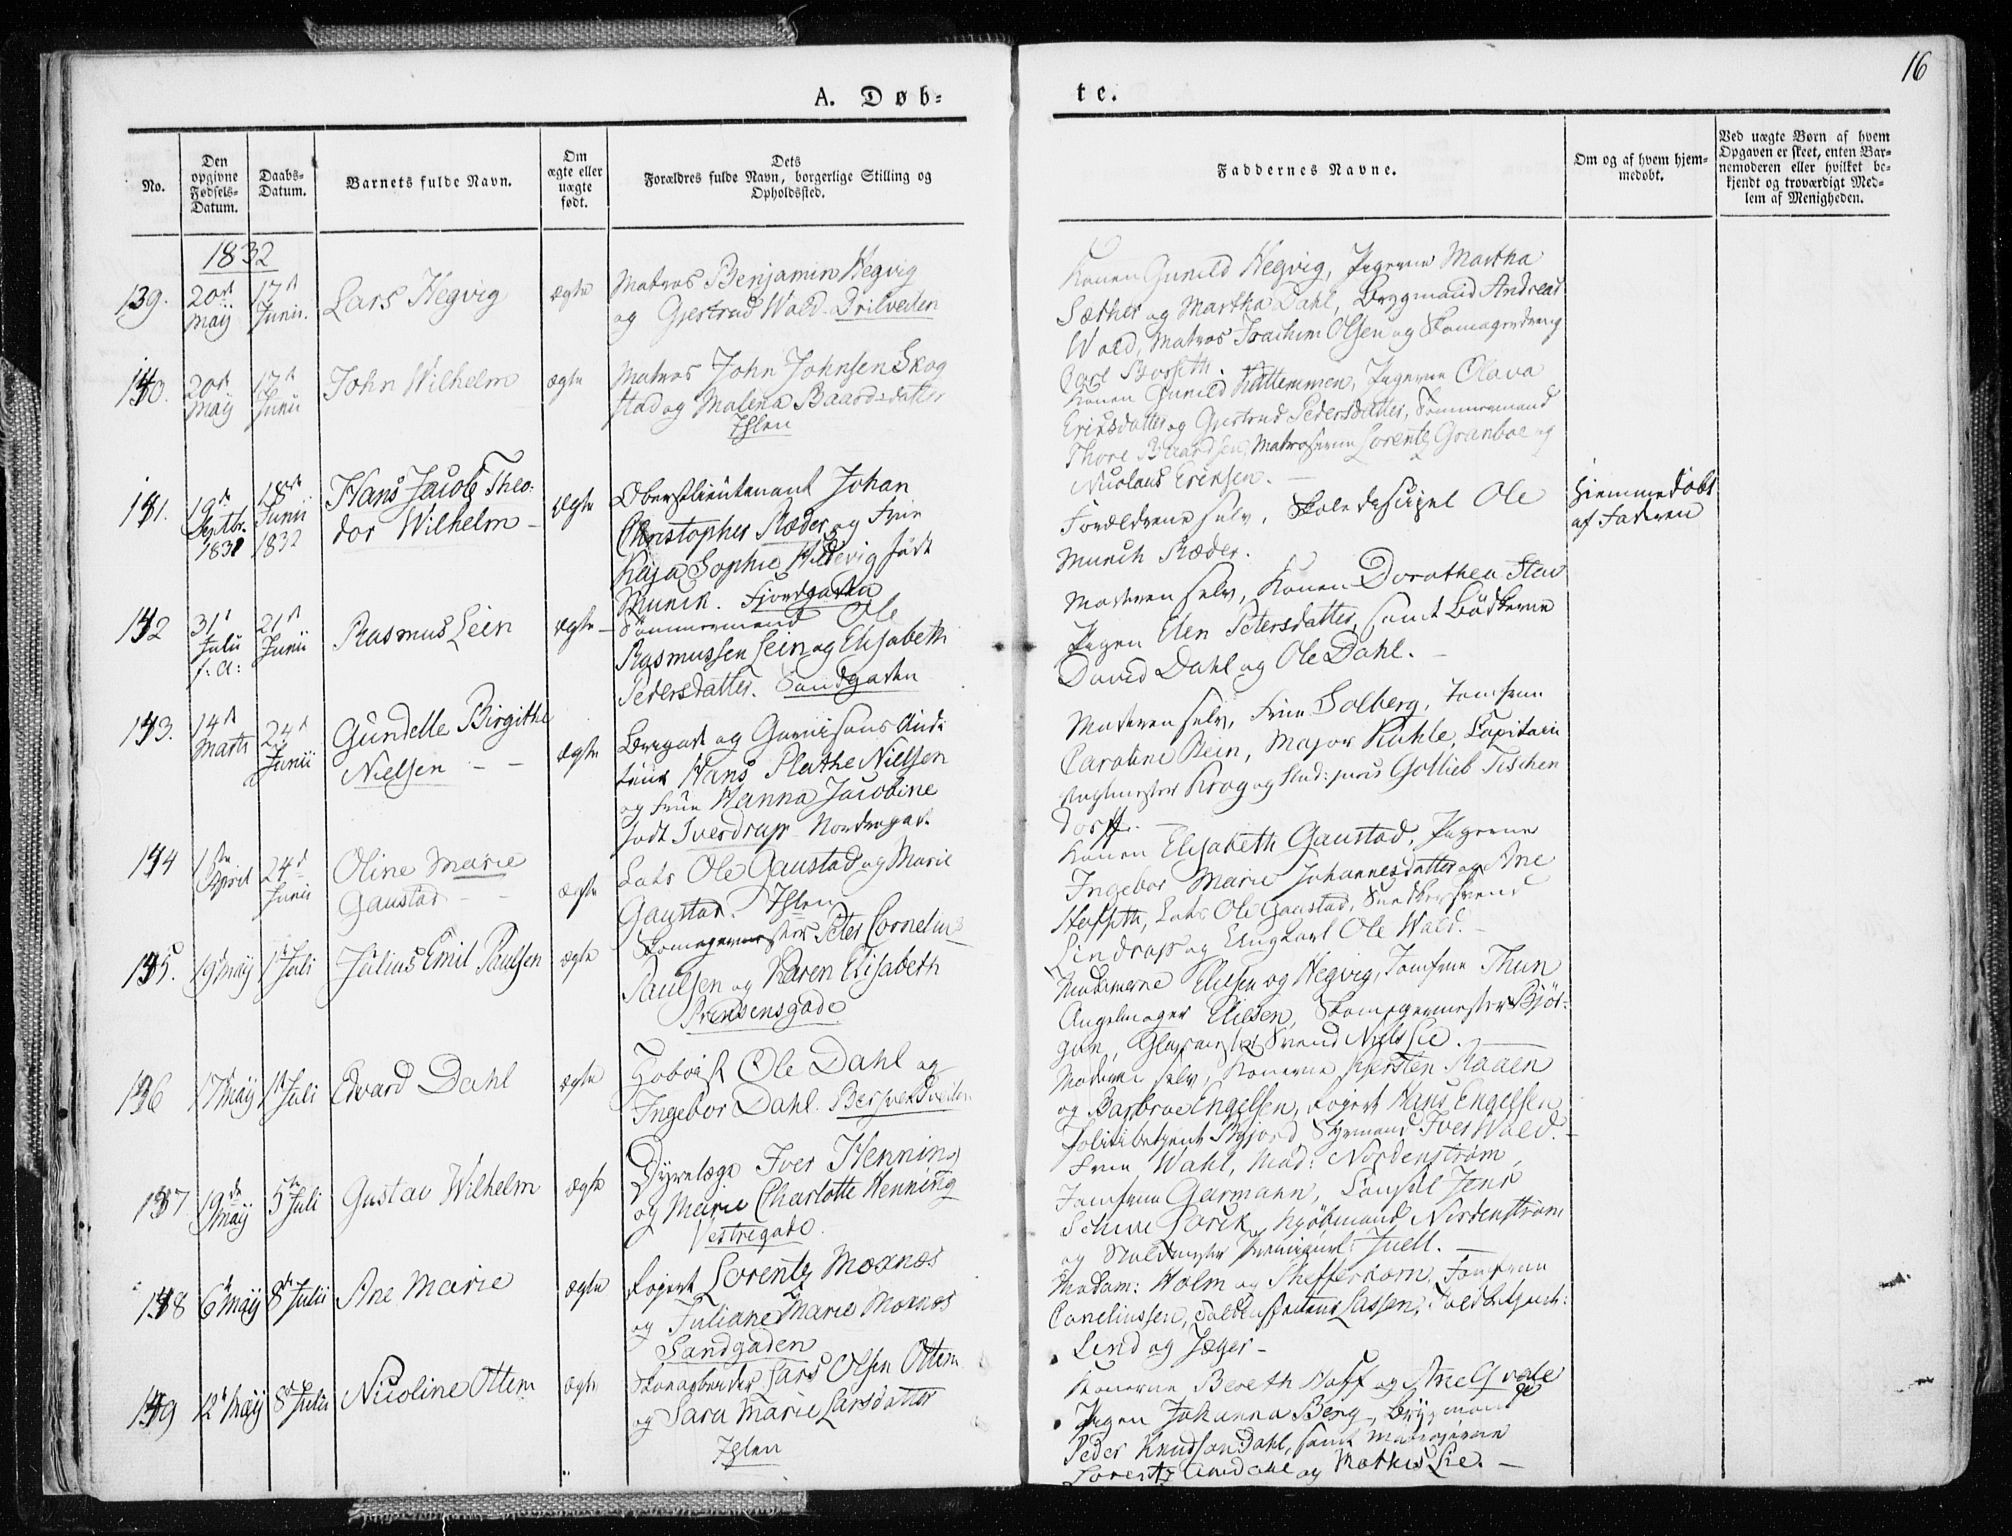 16
A. Døb-
te.
No.
Den opgivne Fødsels-Datum.
Daabs-Datum.
Barnets fulde Navn.
Om ægte eller uægte født.
Dets Forældres fulde Navn, borgerlige Stilling og Opholdssted.
Faddernes Navne.
Om og af hvem hjem-medøbt.
Ved uægte Børn af hvem Opgaven er skeet, enten Bar-nemoderen eller hvilket be-kjendt og troværdigt Med-lem af Menigheden.
1832
139. 20de May 17de Junii. Lars Hegvig ægte
Matros Benjamin Hegvig
og Gjertrud Wold. Drilveden
Konen Gunild Hegvig, Pigerne Martha
Sæther og Martha Dahl, Brygmand Andreas
Wold, Matros Joachim Olsen og Skomagerdreng
Carl Borseth.
20de May 17de Junii John Wilhelm ægte
Matros John Johnsen Skog
stad og Malena Baardsdatter
Ihlen
Konen Gunild Kattemmen, Pigerne Olava
Ericksdatter og Gjertrud Pedersdatter, Tømmermand
Thore Baardsen, Matroserne Lorentz Granboe og
Nicolaus Ericksen.
19de Septbr. 1831 18de Junii 1832 Hans Jacob Theo-
dor Wilhelm ægte
Oberstlieutenant Johan
Christopher Ræder og Frue
Kaja Sophie Hedevig født
Munck. Fjordgaden
Forældrene selv, Skolediscipel Ole
Munch Ræder.
Hjemmedøbt
af Faderen
31te Julii f: a: 21de Junii Rasmus Lein ægte
Tømmermand Ole
Rasmussen Lein og Elisabeth
Pedersdatter. Sandgaden
Moderen selv, Konen Dorothea
Pigen Elen Petersdatter, samt Bødkerne
David Dahl og Ole Dahl.
14de Marts 24de Junii Gundelle Birgithe
Nielsen ægte
Brigade og Garnisons Audi
teur Hans Plathe Nielsen
og Frue Hanna Jacobine
født Sverdrup Nordregade
Moderen selv, Frue Solberg, Jomfrue
Caroline Rein, Major Kühle, Capitain
Vagtmester Krog og Stud: juris Gotlieb Tischen
dorff.
1ste April 24de Junii Oline Marie
Gaustad ægte
Lods Ole Gaustad og Marie
Gaustad. Ihlen
Konen Elisabeth Gaustad, Pigerne
Ingebor Marie Johannesdatter og Ane
Lods Ole Gaustad,
og Ungkarl Ole Wold.
19de May 1ste Juli Julius Emil Paulsen ægte
Skomagermester Peter Cornelius
Paulsen og Karen Elisabeth
Prindsensgade
Madamerne Eliesen og Hegvig, Jomfrue Thun
Angelmager Eliesen, Skomagermester Bjør-
gum, Svend Niels Lie.
17de May 1ste Juli Edvard Dahl ægte
Hoboist Ole Dahl og
Ingebor Dahl. Bersvendveiten
Moderen selv, Konerne Kjersten Raaen
og Barbroe Engelsen, Fogert Hans Engelsen
Politibetjent Bjjord, Styrmand Iver Wold.
19de May 5te Juli Gustav Wilhelm ægte
Dyrelæge Iver Henning
og Marie Charlotte Henning
Vestregade.
Frue Wahl, Mad: Nordenstrøm,
Jomfrue Garmann, Consul Jens
Kjøbmand Nordenstrøm
og Juell.
6te May 8de Julii Ane Marie ægte
Lorentz Moxnæs
og Juliane Marie Moxnæs
Sandgaden
Madam: Holm og Shefterkorn, Jomfrue
Corneliussen, Lassen, Toldbetjent:
Lind og Jæger
12te May 8de Julii Nicoline Ottem ægte
Skoarbeider Lars Olsen Ottem
og Sara Marie Larsdatter
Ihlen
Konerne Bereth Hoff og Ane
Pigen Johanna Berg, Brygmand
Peder Knudsen Dahl, samt Matroserne
Lorentz og Mathis Lie.